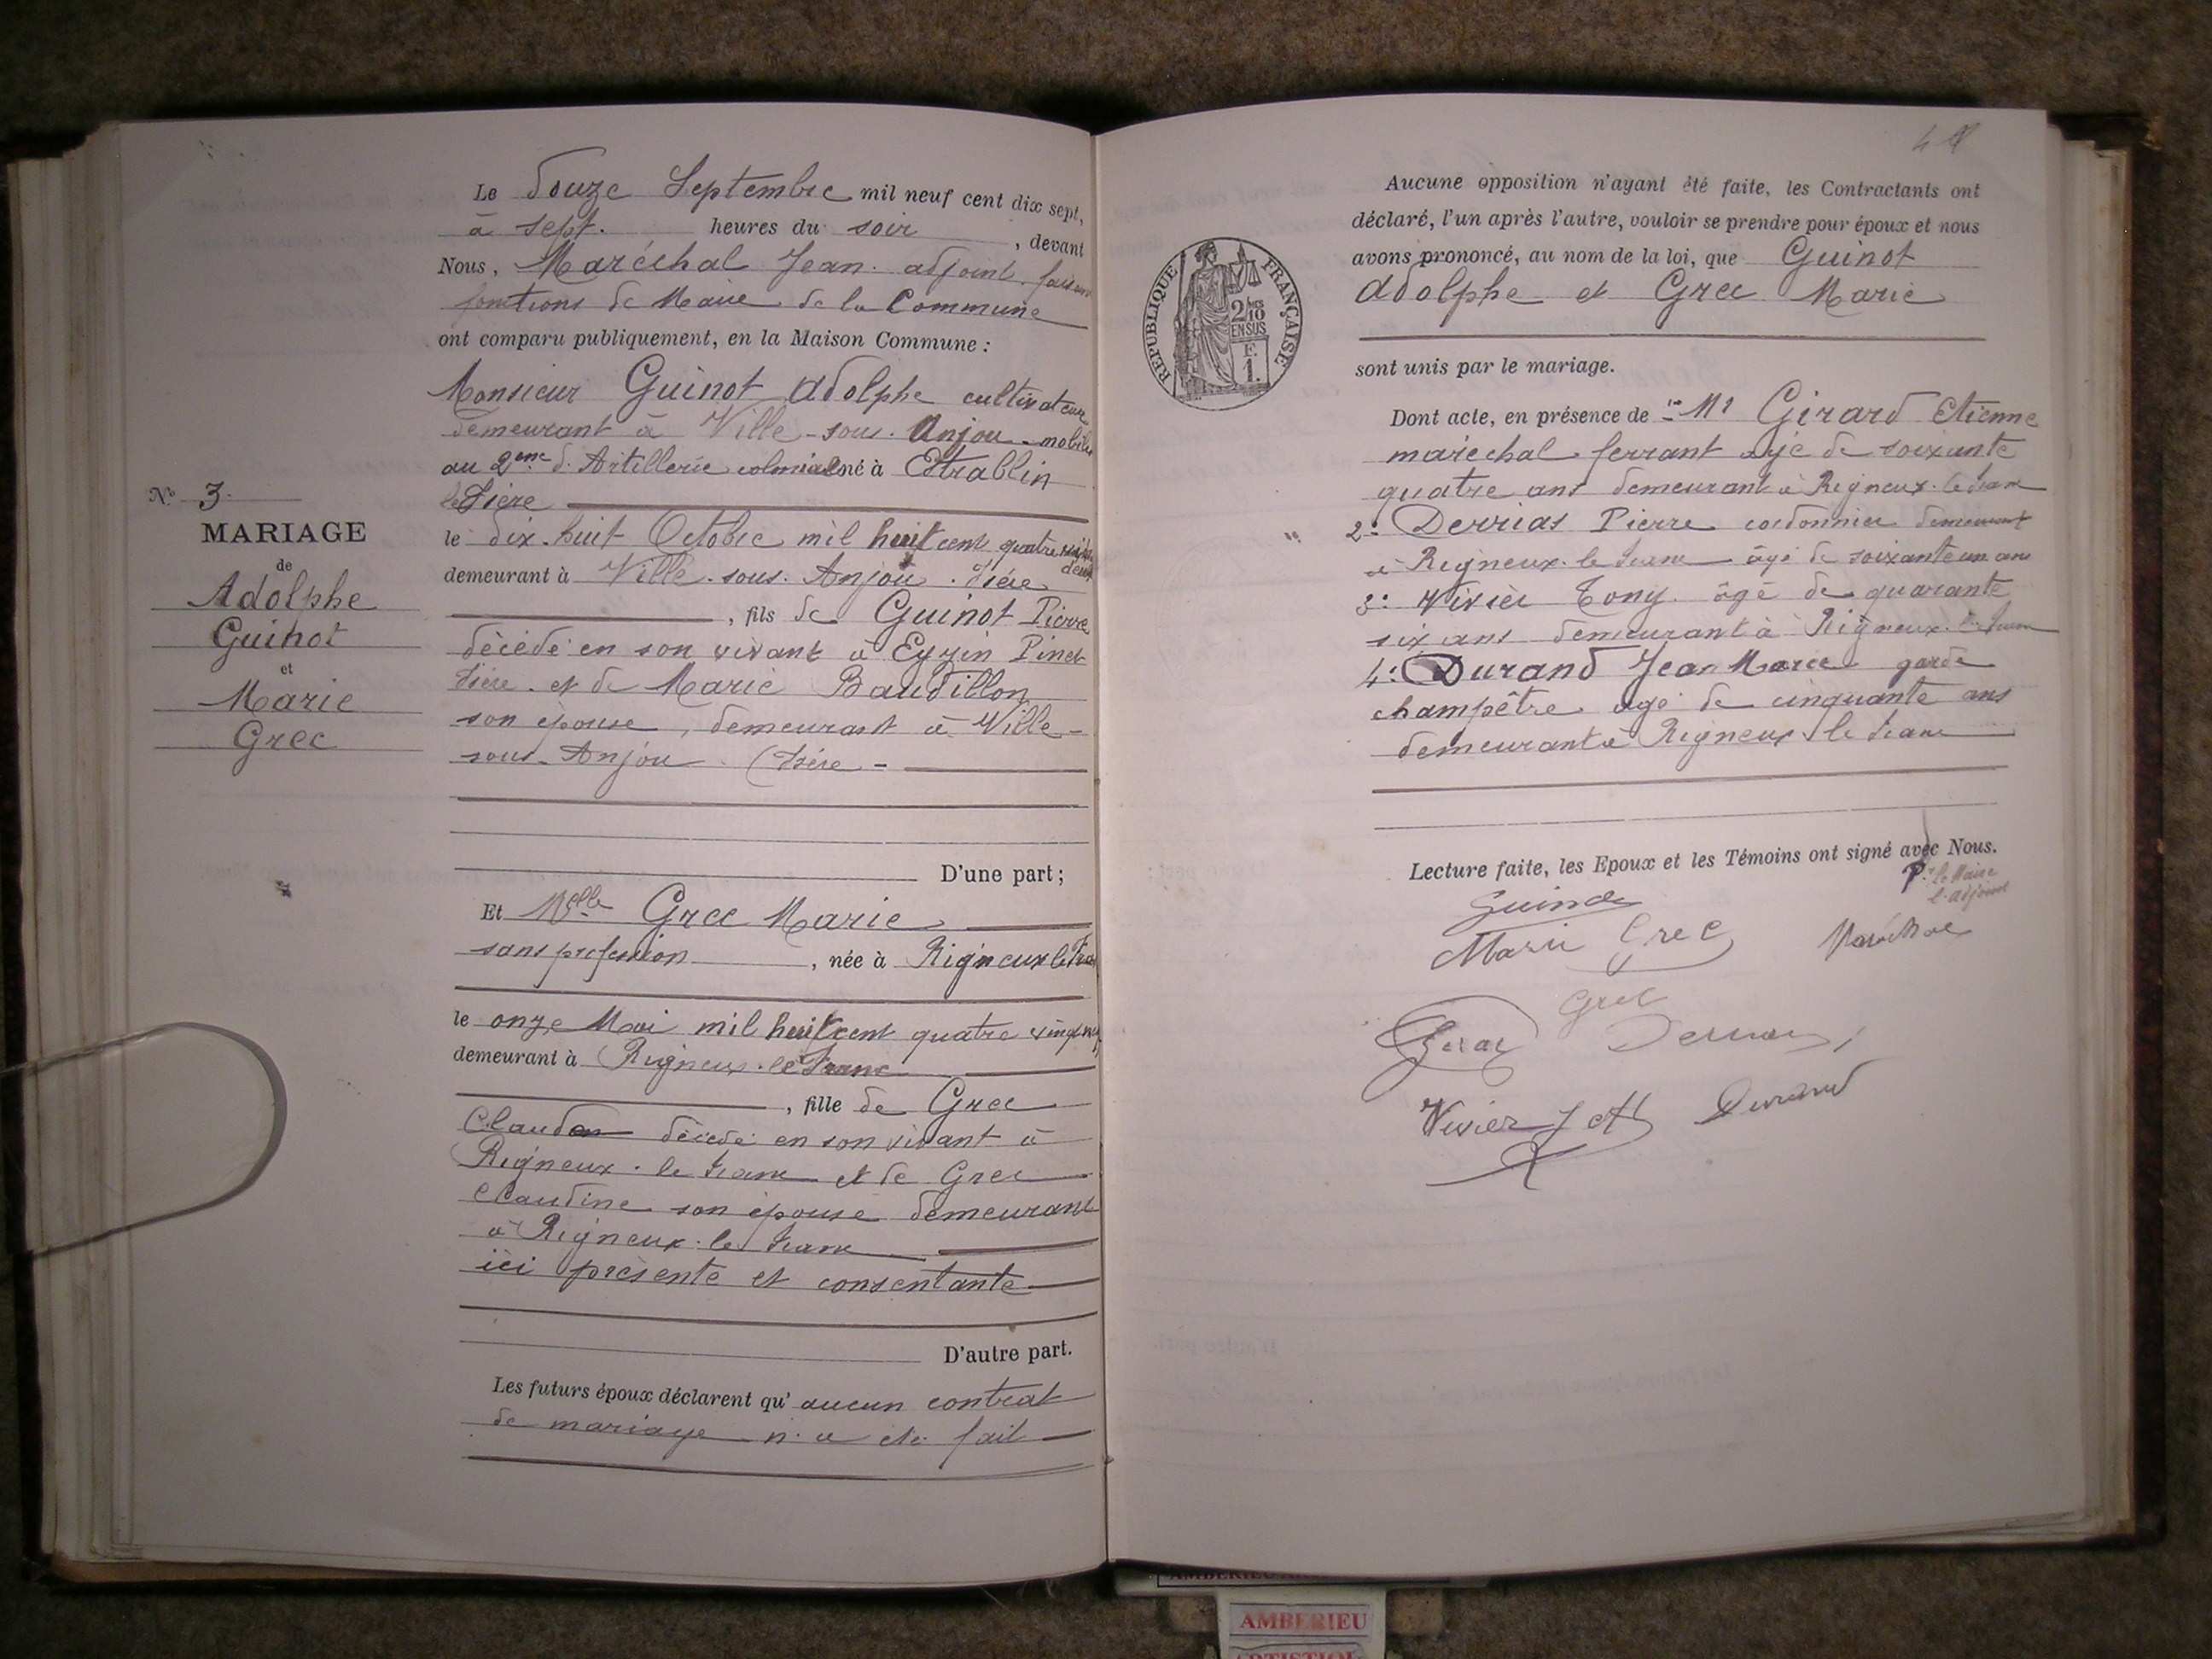 Le douze Septembre mil neuf cent dix sept,
à sept. heures du soir, devant
Nous, Maréchal Jean. adjoint. faisant
fonctions de Maire de la Commune
ont comparu publiquement, en la Maison Commune :
Monsieur Guinot Adolphe cultivateur
demeurant à Ville-sous-Anjou. mobilisé
au 2eme d'Artillerie coloniale né à Estrablin
Isère
le dix-huit Octobre mil huit cent quatre vingt
deux
demeurant à Ville-sous-Anjou. Isère
, fils de Guinot Pierre
décédé en son vivant à Eyzin Pinet
Isère. et de Marie Baudillon
son épouse, demeurant à Ville-
sous-Anjou (Isère -
D'une part ;
Et Melle Grec Marie
sans profession, née à Rigneux le Franc
le onze Mai mil huit cent quatre vingt neuf
demeurant à Rigneux-le Franc
, fille de Grec
Claude décédé en son vivant à
Rigneux-le franc et de Grec
Claudine son épouse demeurant
à Rigneux-le franc
ici présente et consentante
D'autre part.
Les futurs époux déclarent qu'aucun contrat
de mariage n'a été fait
No 3.
MARIAGE
de
Adolphe
Guinot
et
Marie
Grec
Aucune opposition n'ayant été faite, les Contractants ont
déclaré, l'un après l'autre, vouloir se prendre pour époux et nous
avons prononcé, au nom de la loi, que Guinot
Adolphe et Grec Marie
sont unis par le mariage.
RÉPUBLIQUE FRANÇAISE
2/10
EN SUS
F.
1.
Dont acte, en présence de 1° Mr Girard Etienne
maréchal ferrant agé de soixante
quatre ans demeurant à Rigneux-le franc
2° Derrias Pierre cordonnier demeurant
à Rigneux-le franc âgé de soixante un ans
3° Vivier Tony. âgé de quarante
six ans demeurant à Rigneux-le franc
4° Durand Jean Marie garde
champêtre agé de cinquante ans
demeurant à Rigneux le franc
Lecture faite, les Epoux et les Témoins ont signé avec Nous.
Pr le Maire
l'adjoint
Guinot
Marie Grec Maréchal
Grec
Girard Derrias
Vivier Durand
AMBERIEU